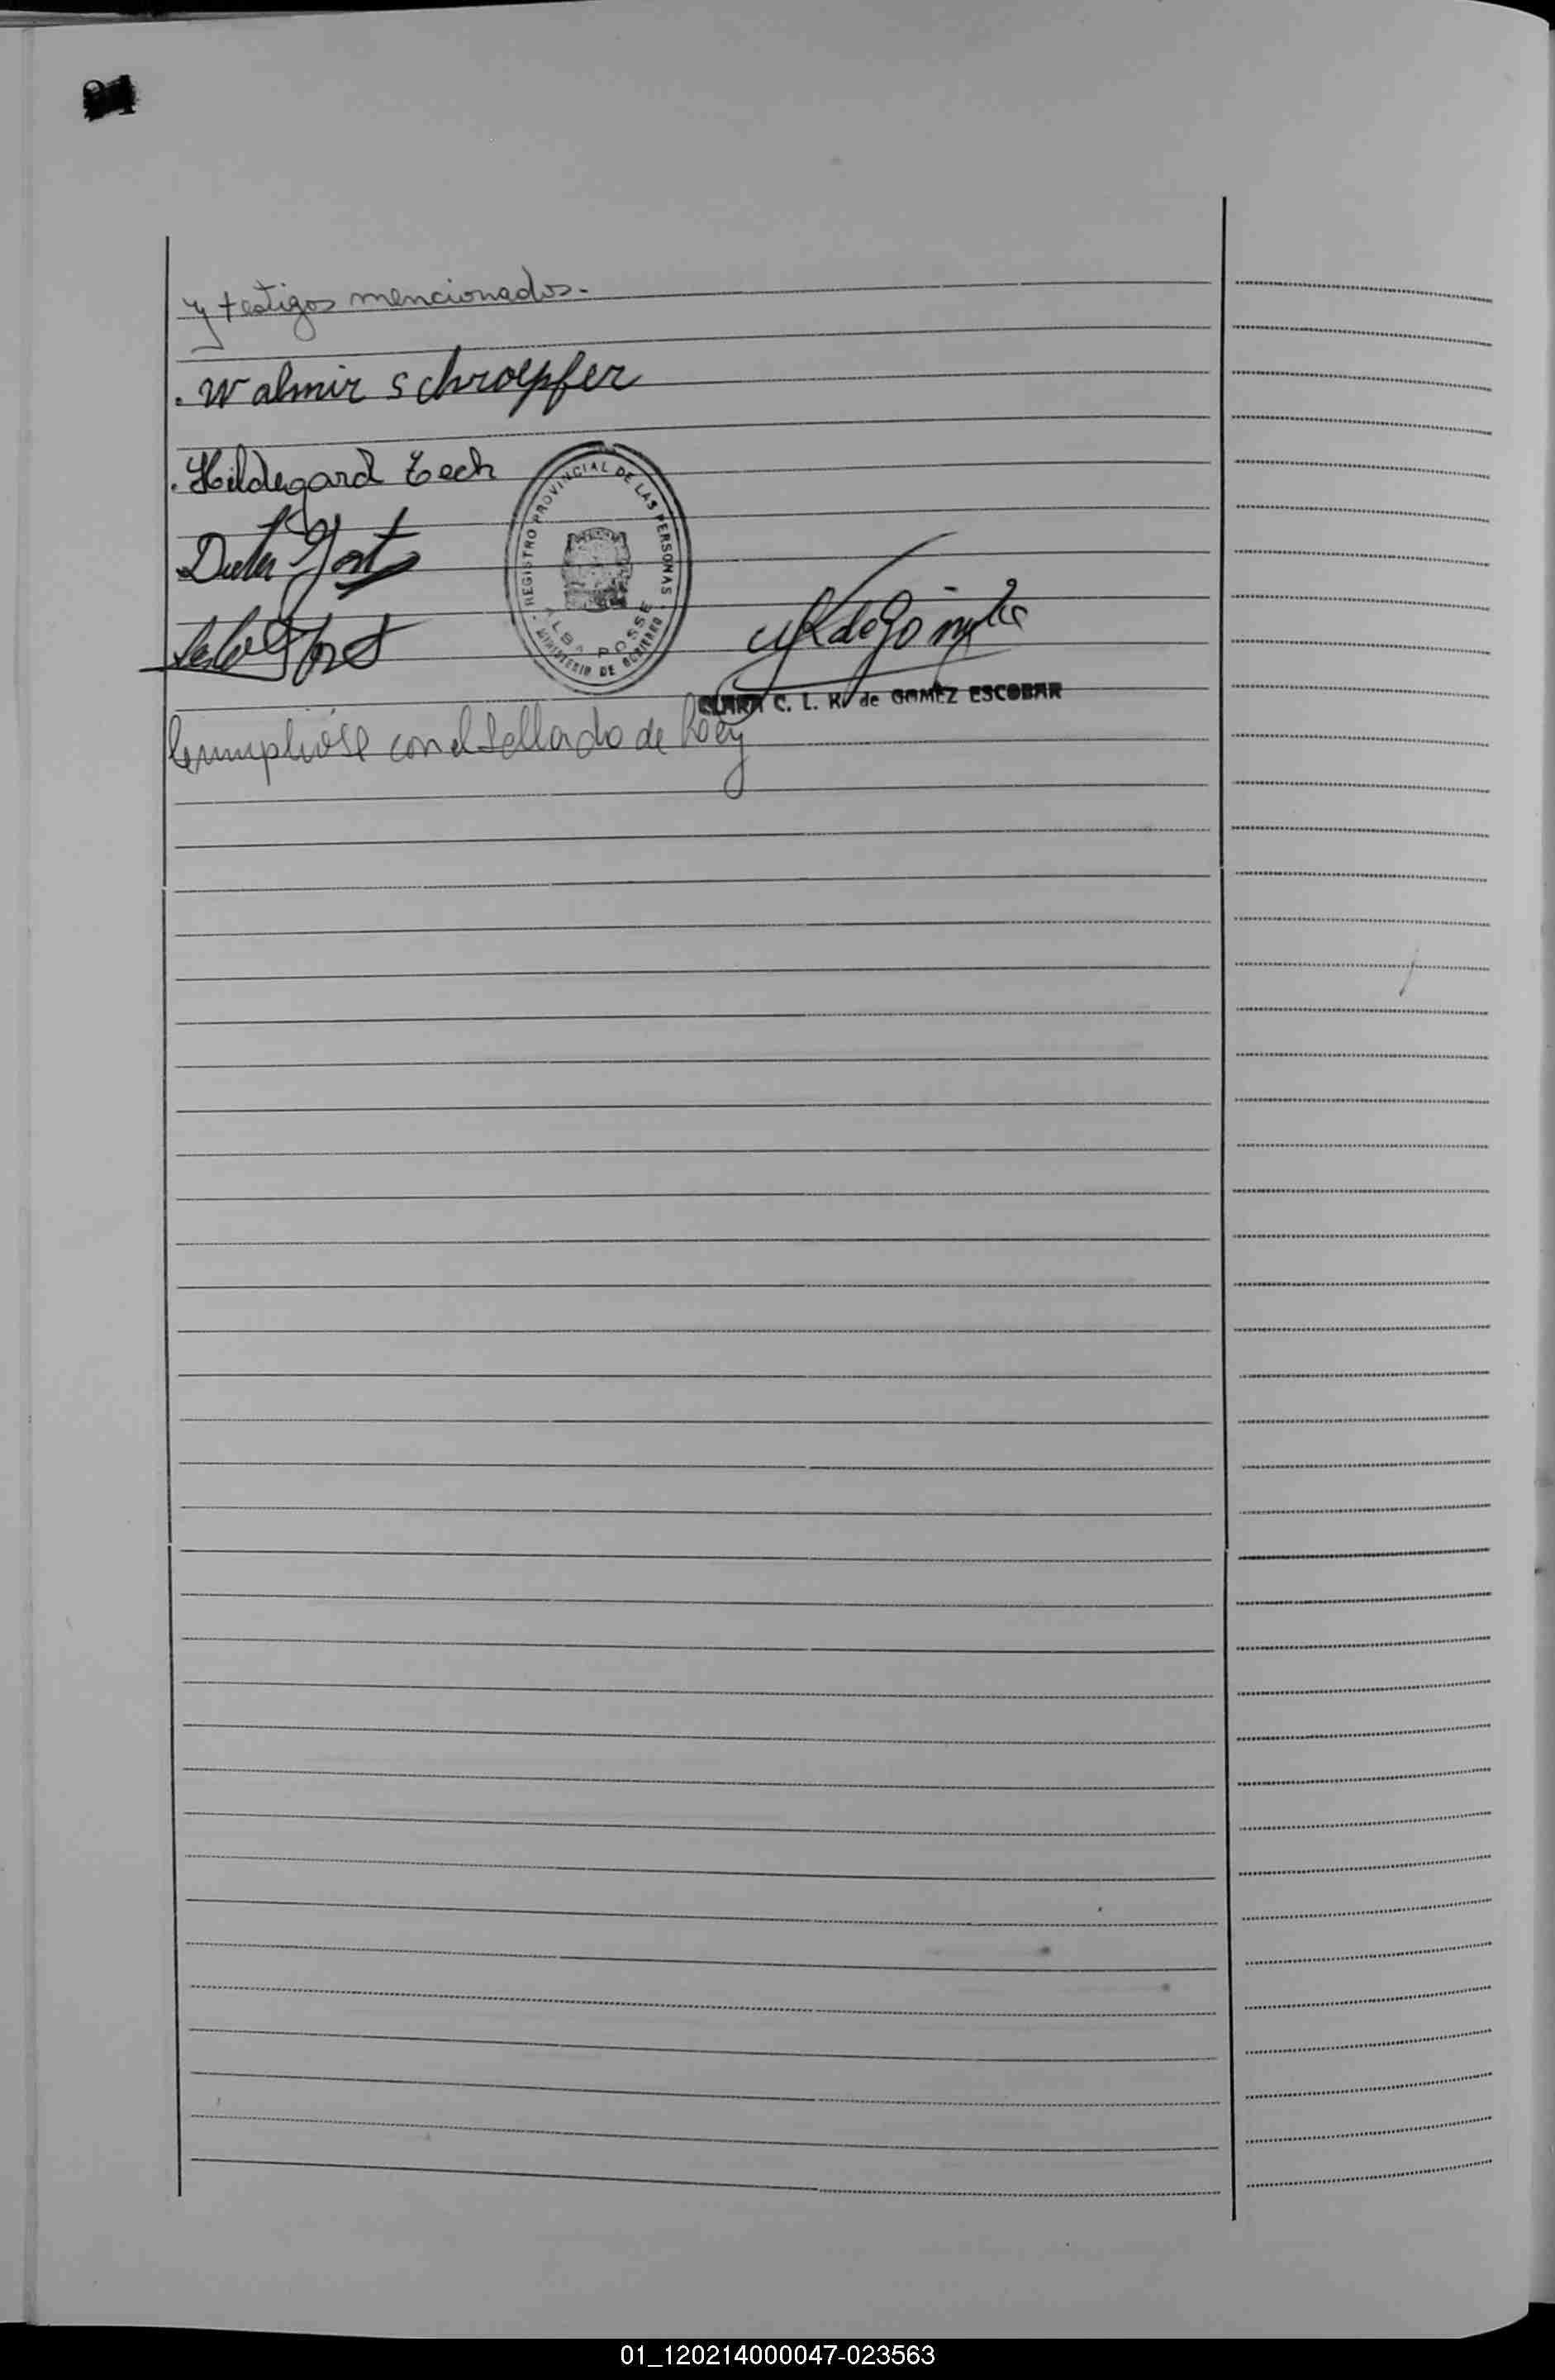 y testigos mencionados.-
. Walmir Schroepfer
. Hildegard Tech
REGISTRO PROVINCIAL DE LAS PERSONAS
ALBA POSSE
MINISTERIO DE GOBIERNO
CLARA C. L. K. de GOMEZ ESCOBAR
Cumplióse con el sellado de Ley
01_120214000047-023563